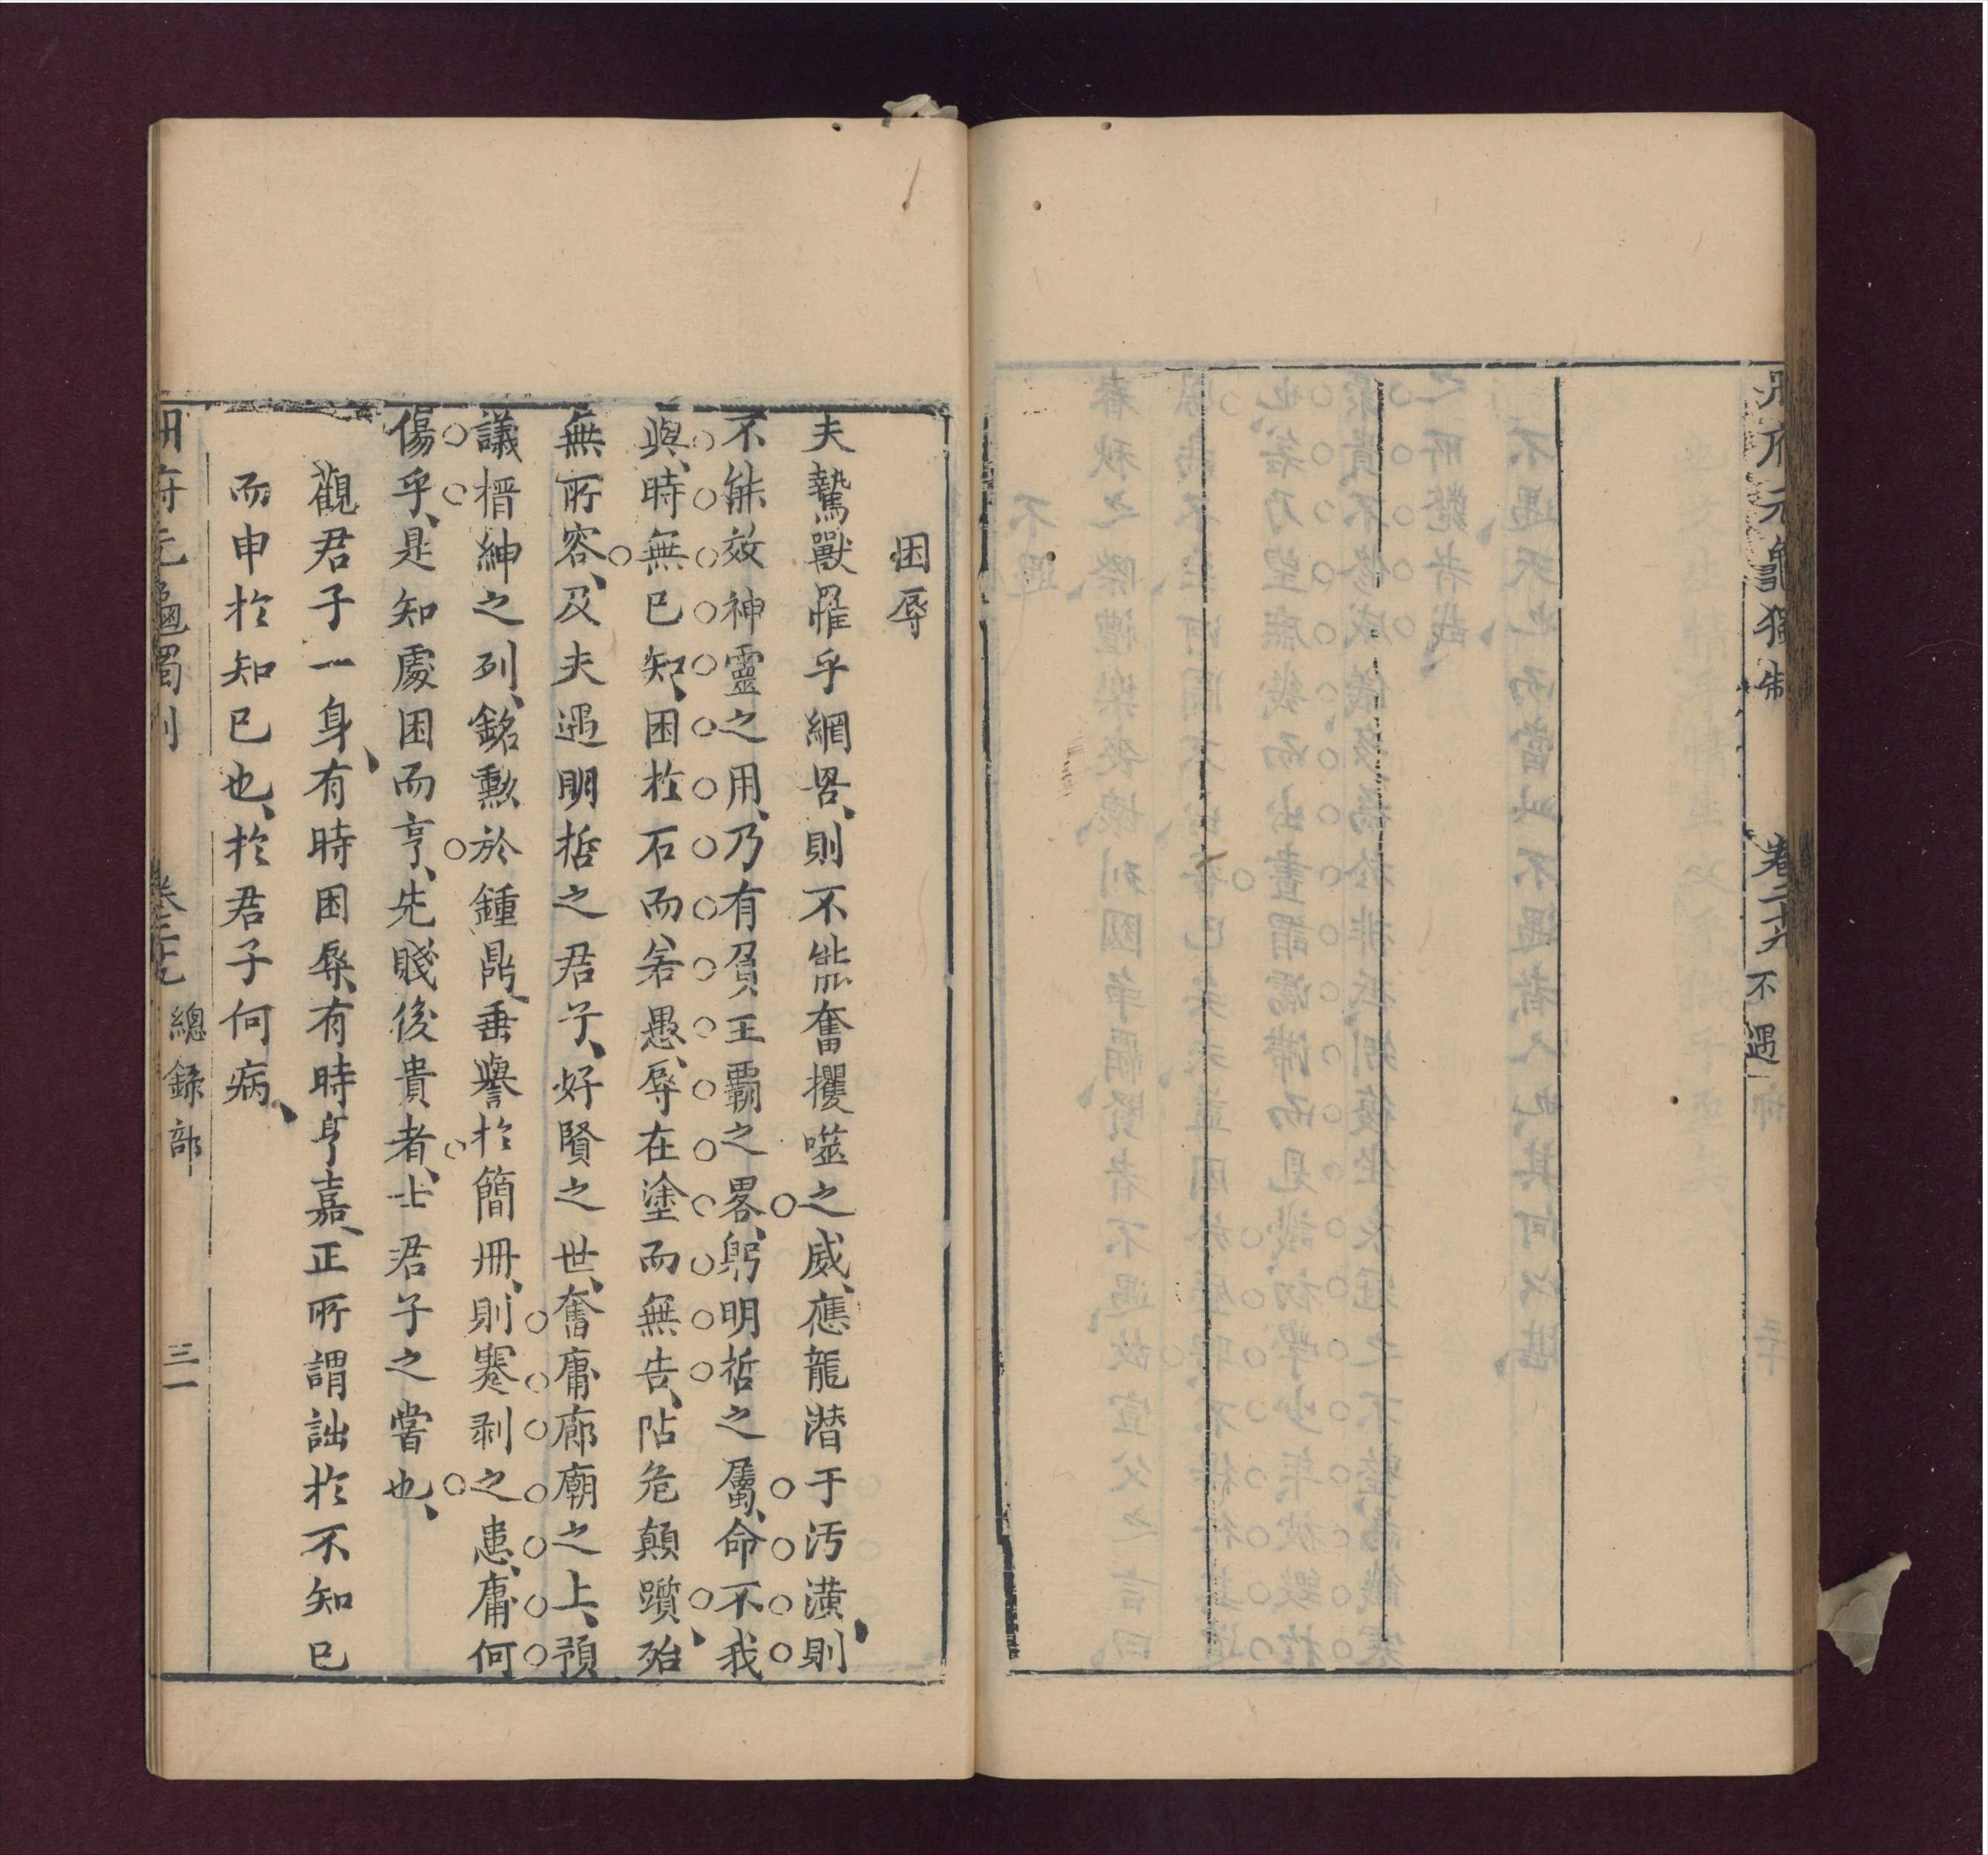 冊府元龜獨制
卷二十六
不遇
困辱
夫鷙獸罹乎網罟、則不能奮攫噬之威、應龍潛于汚潢、則
不能效神靈之用、乃有負王霸之畧、躬明哲之屬、命不我
與、時無已知、困於石而、若愚、辱在塗而無告、阽危顛躓、殆
無所容、及夫遇明哲之君子、好賢之世、奮庸廊廟之上、預
議搢紳之列、銘勲於鍾鼎、垂譽於簡冊、則蹇剥之患、庸何
傷乎、是知處困而亨、先賤後貴者、士君子之嘗也、
觀君子一身、有時困辱、有時亨嘉、正所謂詘於不知已
而申於知已也、於君子何病、
冊府元龜獨制
總錄部
三一